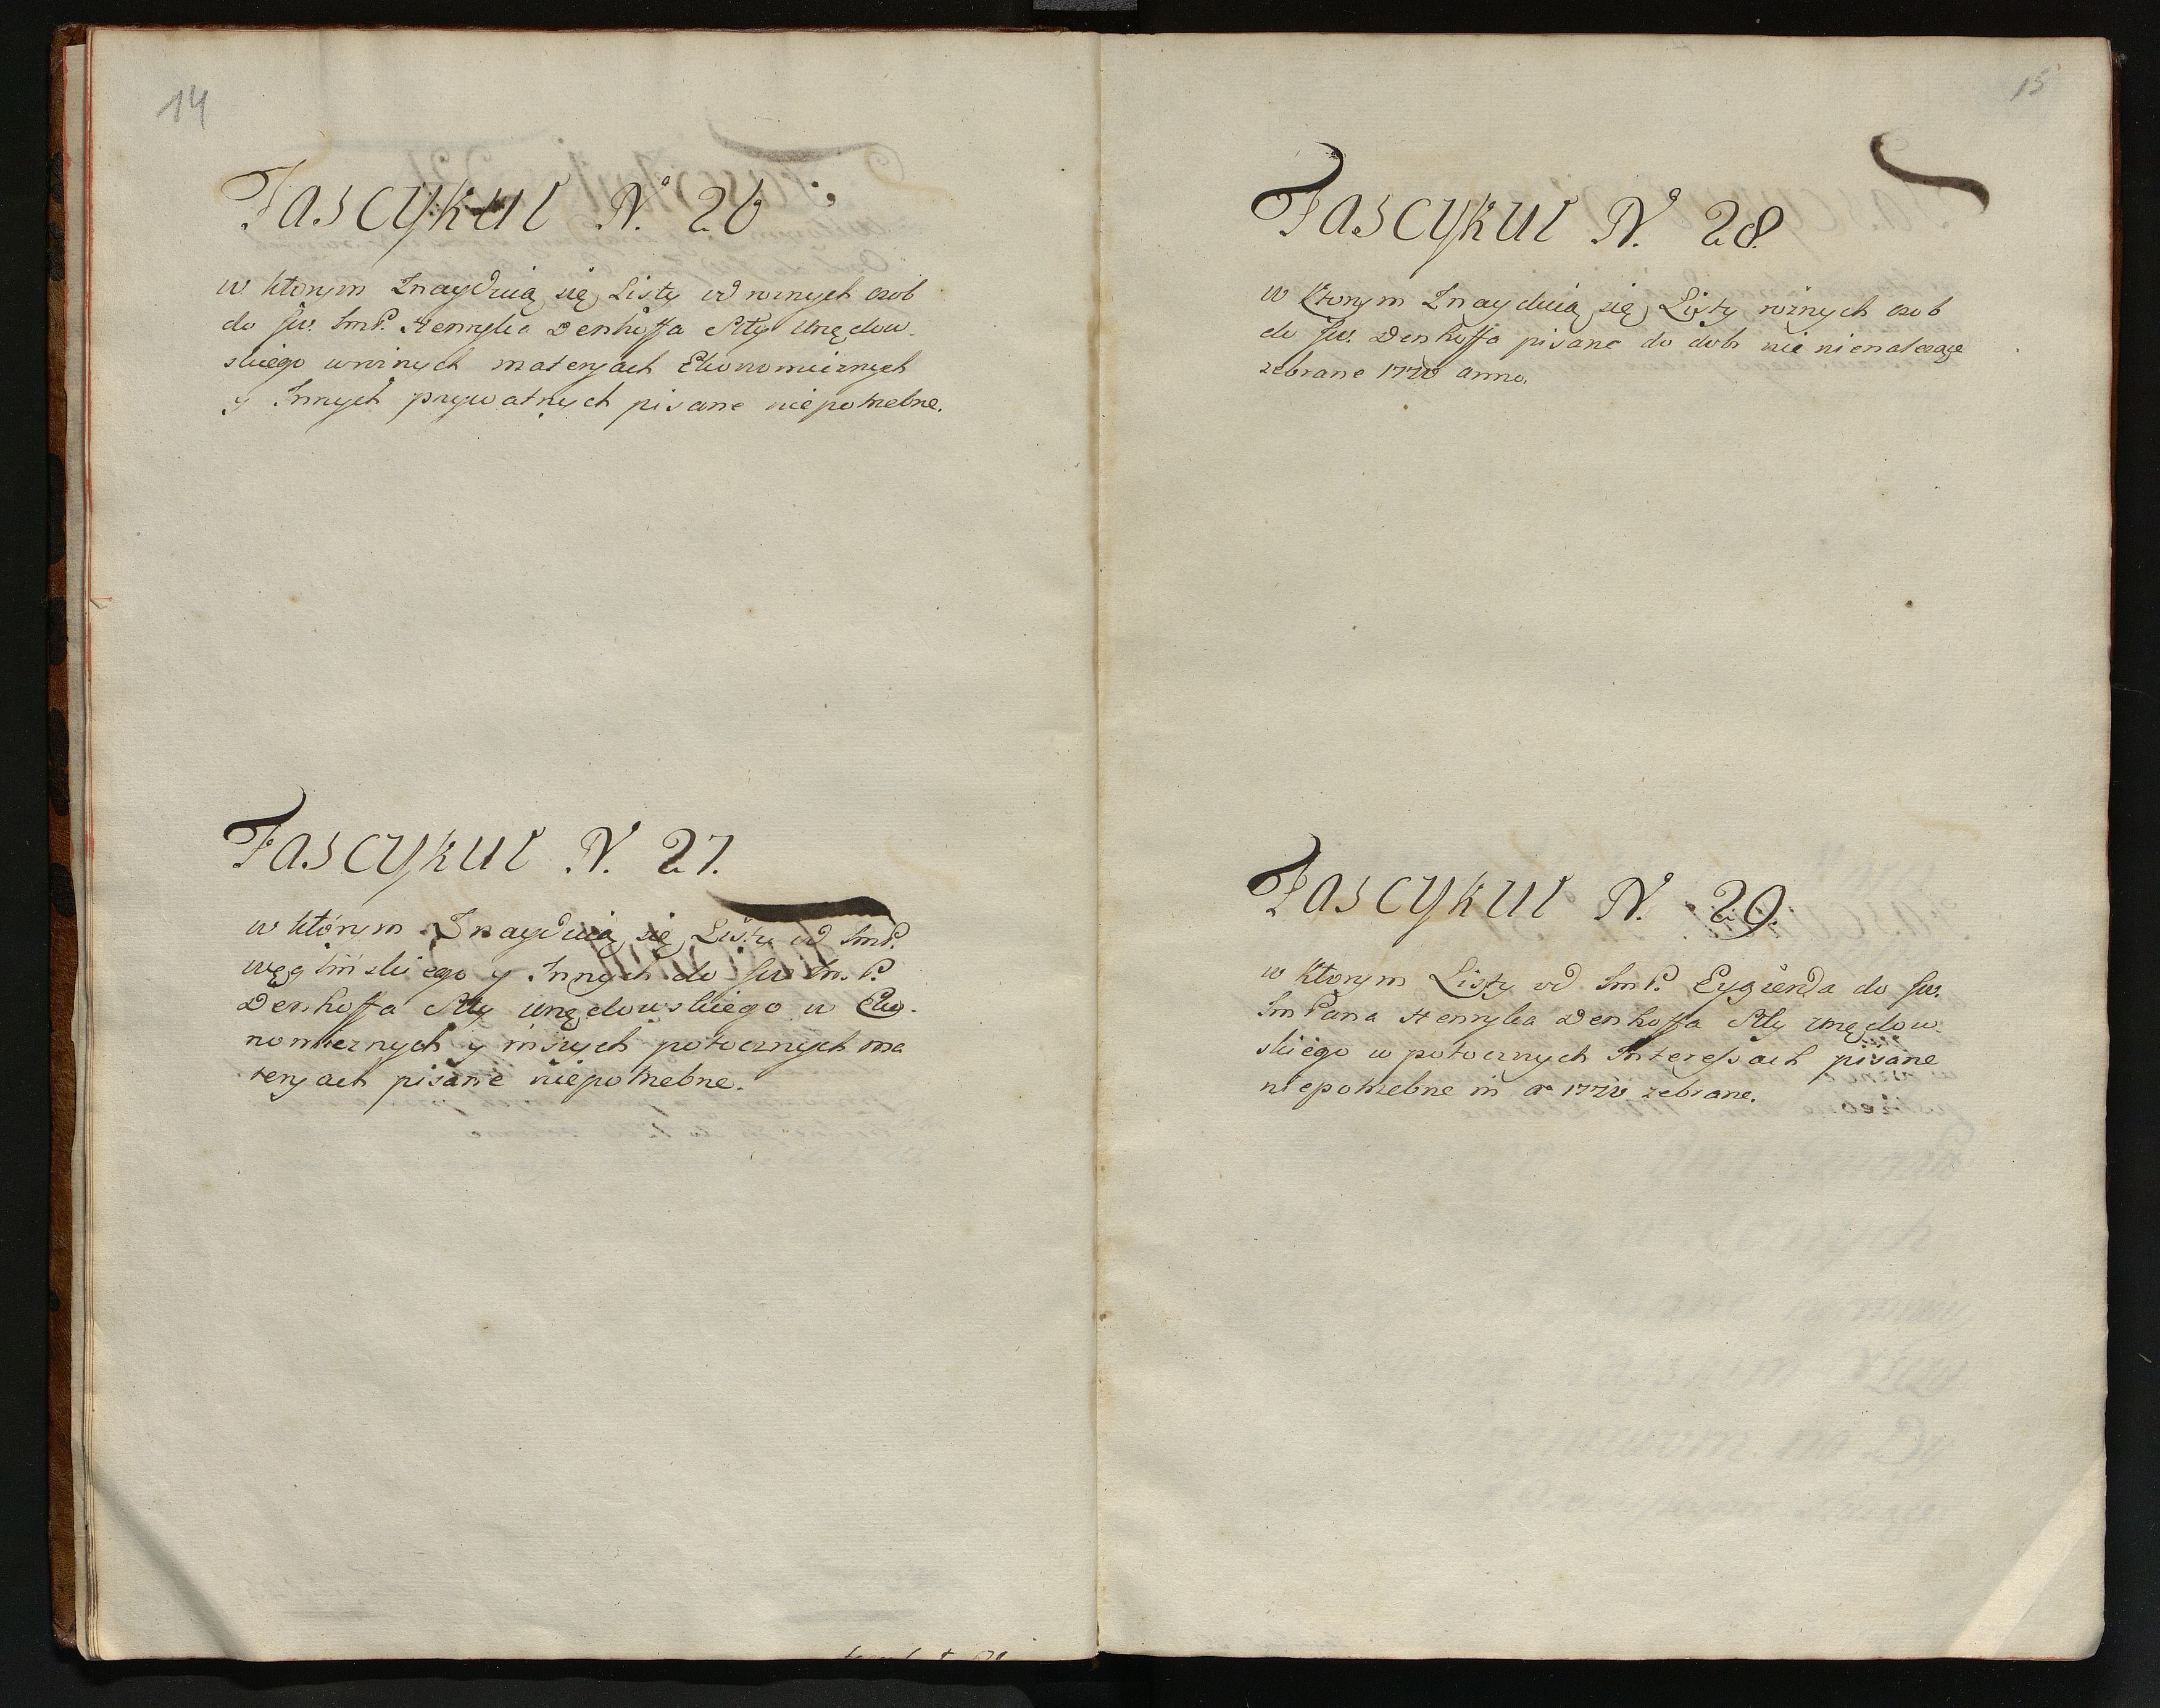 14
Fascykuł N. 26
w ktorym Znayduią się Listy od roznych osob
do Jw. ImP. Henryka Denhoffa Stty Urzędow-
skiego w roznych materyach Ekonomicznych
y Innych prywatnych pisane niepotrzebne.
Fascykuł N. 27.
w którym Znayduią się Listy od ImP.
Węglińskiego y Innych do Jw Im. P.
Denhoffa Stty urzędowskiego w Eko-
nomicznych y inszych potocznych ma
teryach pisane niepotrzebne.
15
Fascykuł N. 28.
w ktorym Znayduią się Listy rożnych osob
do Jw. Denhoffa pisane do dobr nic nienależące
zebrane anno.
Fascykuł N. 29.
w ktorym Listy od ImP. do Jw.
ImPana Henryka Denhoffa Stty urzędow-
skiego w potocznych Interessach pisane
niepotrzebne in Ao zebrane.